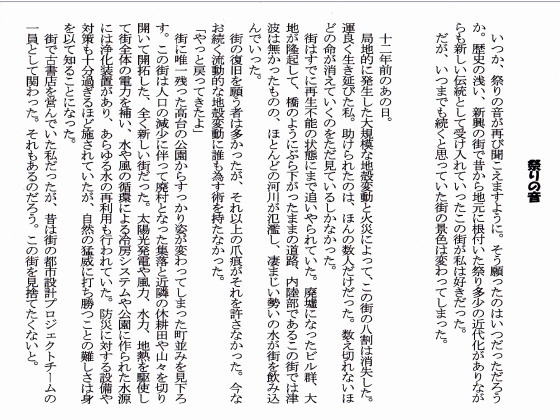 祭りの音
いつか、祭りの音が再び聞こえますように。そう願ったのはいつだっただろう
か。歴史の浅い、新興の街で昔から地元に根付いていた祭り多少の近代化がありなが
らも新しい伝統として受け入れていったこの街が私は好きだった。
だが、いつまでも続くと思っていた街の景色は変わってしまった。
十二年前のあの日。
局地的に発生した大規模な地殻変動と火災によって、この街の八割は消失した。
運良く生き延びた私。助けられたのは、ほんの数人だけだった。数え切れないほ
どの命が消えていくのをただ見ているしかなかった。
街はすでに再生不能の状態にまで追いやられていた。廃墟になったビル群、大
地が隆起して、橋のようにぶら下がったままの道路、内陸部であるこの街では津
波は無かったものの、ほとんどの河川が氾濫し、凄まじい勢いの水が街を飲み込
んでいった。
街の復旧を願う者は多かったが、それ以上の爪痕がそれを許さなかった。今な
お続く流動的な地殻変動に誰も為す術を持たなかった。
「やっと戻ってきたよ」
街に唯一残った高台の公園からすっかり姿が変わってしまった町並みを見下ろ
す。この街は人口の減少に伴って廃村となった集落と近隣の休耕田や山々を切り
開いて開拓した、全く新しい街だった。太陽光発電や風力、水力、地熱を駆使し
て街全体の電力を補い、水や風の循環による冷房システムや公園に作られた水源
には浄化装置があり、あらゆる水の再利用も行われていた。防災に対する設備や
対策も十分過ぎるほど施されていたが、自然の猛威に打ち勝つことの難しさは身
を以て知ることになった。
街で古書店を営んでいた私だったが、昔は街の都市設計プロジェクトチームの
一員として関わった。それもあるのだろう。この街を見捨てたくないと。